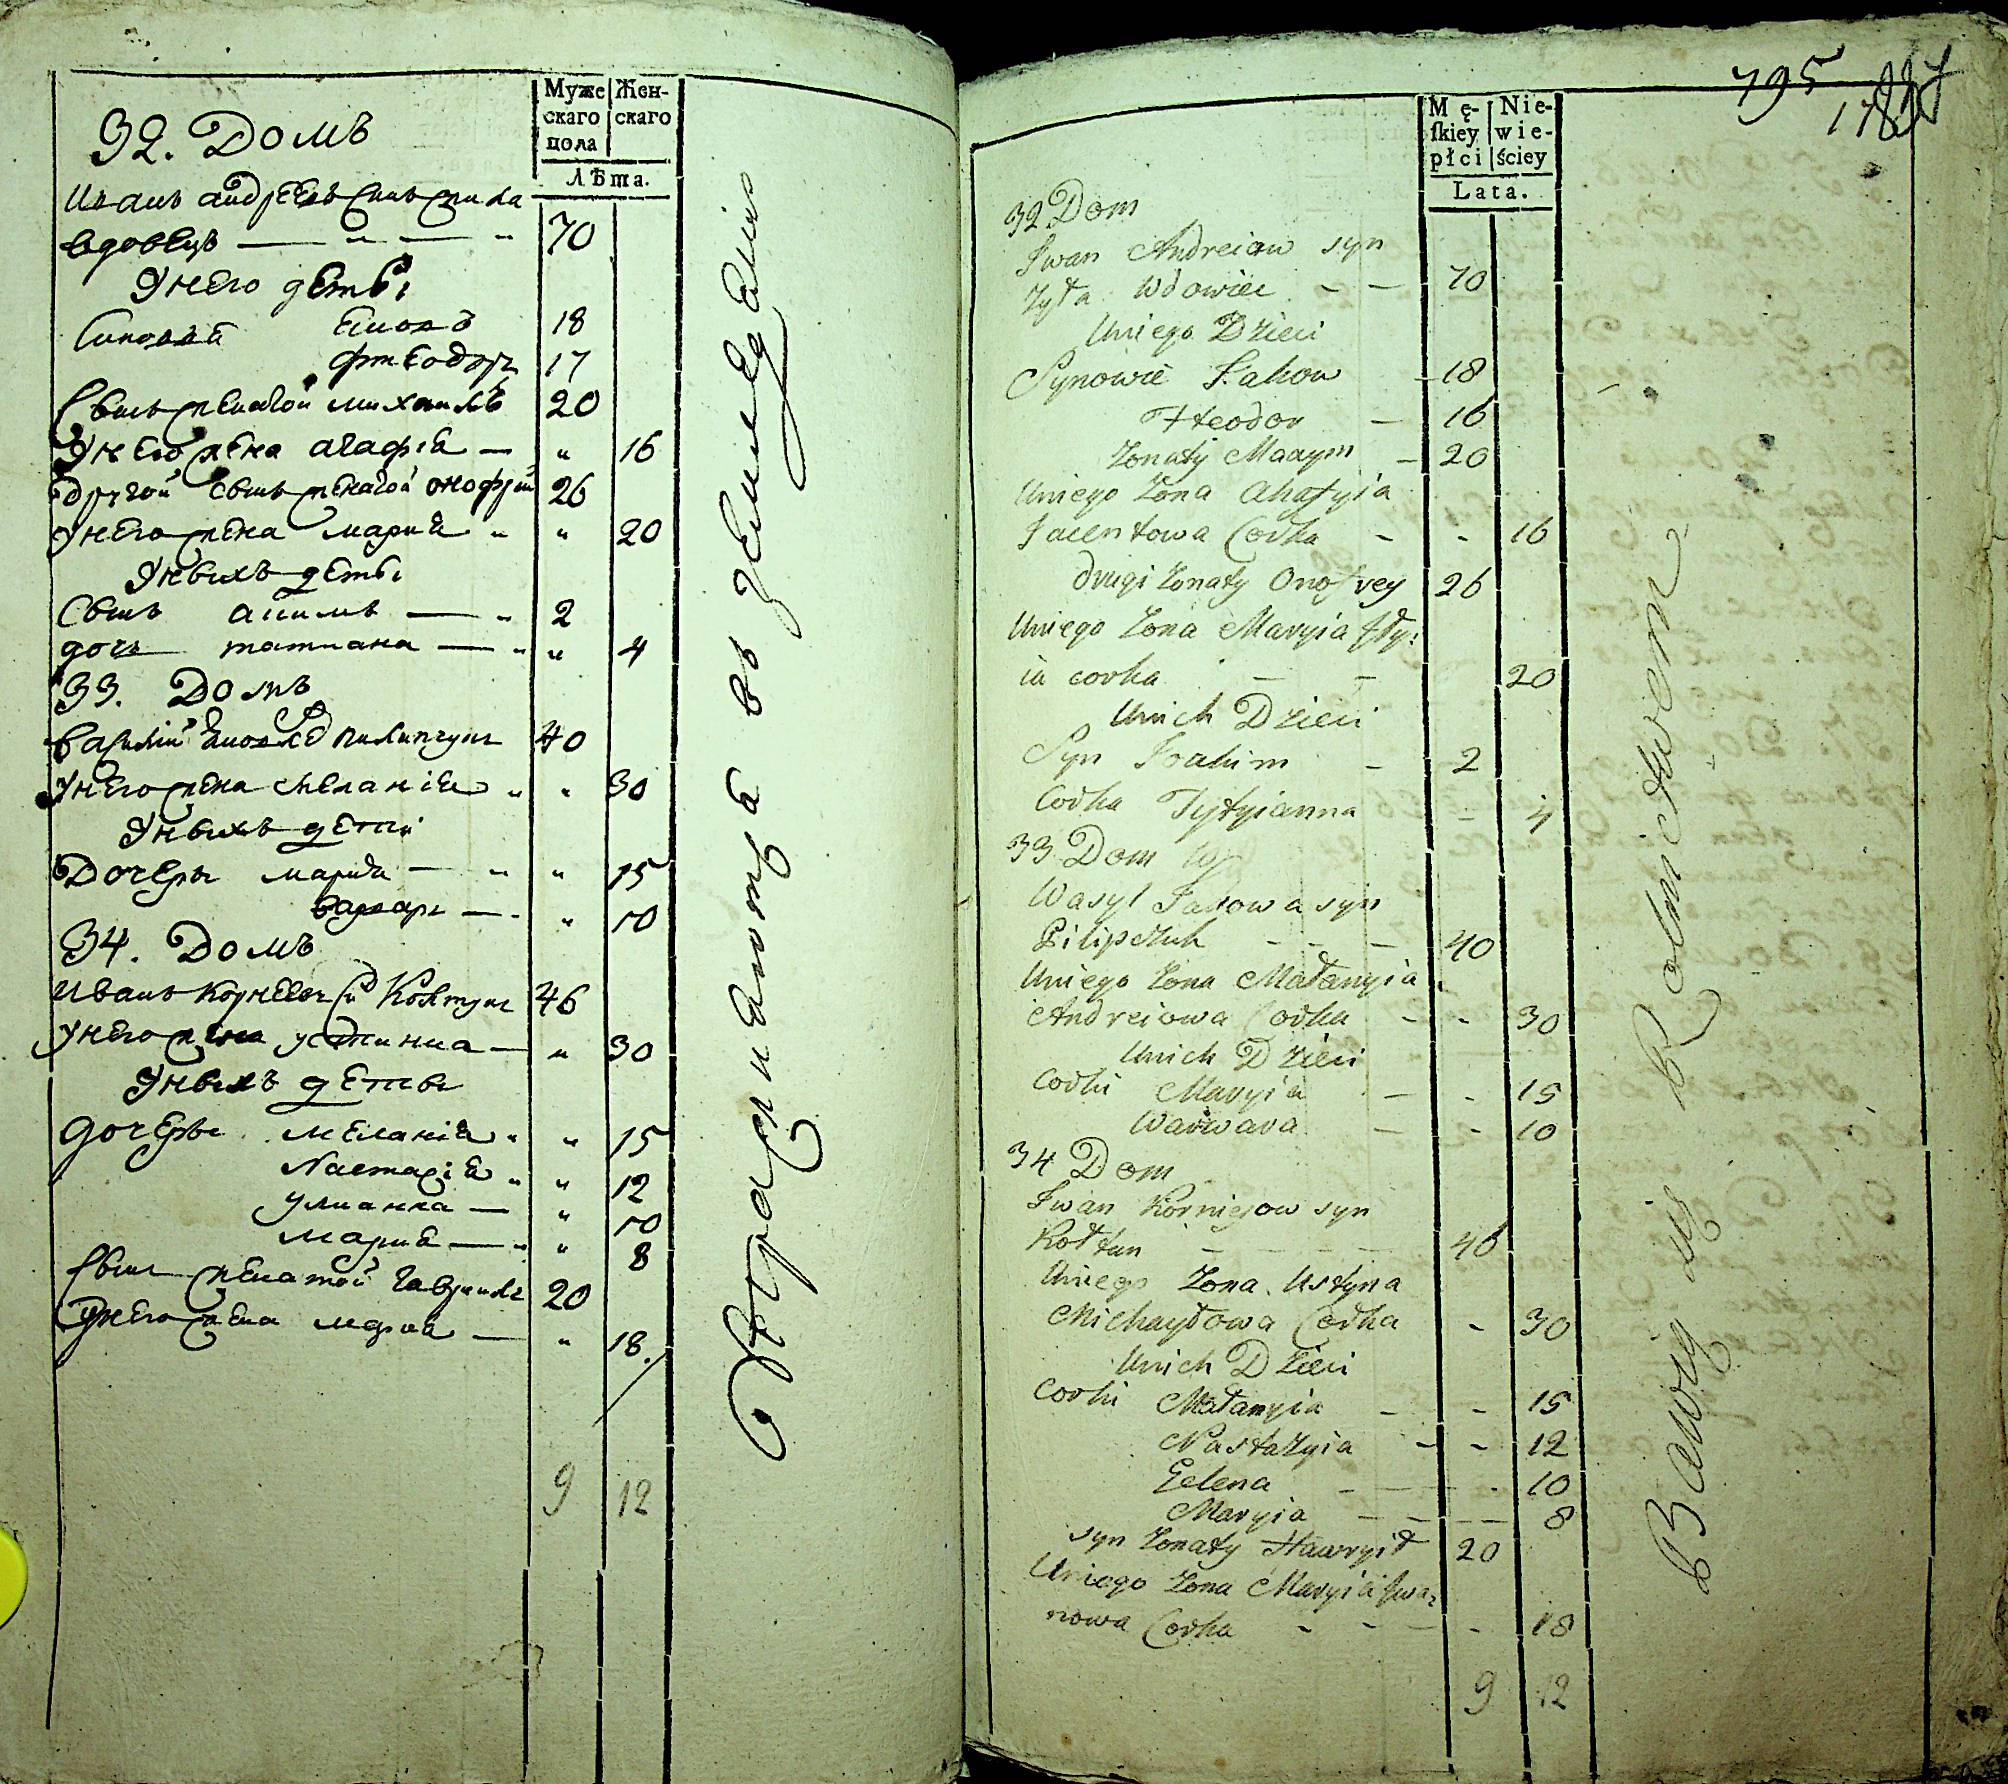 Муже
скаго
пола
Жен-
скаго
Лѣта.
32. Домъ
Иванъ андреевъ синъ
вдовецъ — „ — „ 70
У него дети
Синовья Яковъ 18
фтеодоръ 17
Синъ женатой михаилъ 20
У него жена агафія — „ 16
другой синъ женатой онофрий 26
У него жена мария „ „ 20
У нихъ дети
Синъ акимъ — „ 2
дочь татиана — „ „ 4
33. Домъ
Василий Яковлев Пилипчукъ 40
У него жена меланія „ „ 30
У нихъ дети
Дочеры мария — „ „ 15
варвара — „ 10
34. Домъ
Иванъ Корнеевъ Колтунъ 46
У него жена устиниа — „ 30
У нихъ дети
дочеры меланія „ „ 15
Настасія „ „ 12
улианна — „ 10
мария — „ „ 8
Синъ женатой гаврилъ 20
У него жена мария — „ 18.
9 12
в земледелии
795
Mę-
skiey
płci
Nie-
wie-
ściey
Lata.
32 Dom
Iwan Andreiow syn
Zyła Wdowiec — — 70
Uniego Dzieci
Synowie Jakow — 18
Fteodor — 16
Zonaty Maxym — 20
Uniego Zona Ahafyia
Jacentowa Corka - - 16
drugi Zonaty Onofrey 26
Uniego Zona Maryia
ia corka — — 20
Unich Dzieci
Syn Joakim — 2
Corka Tytyianna — 4
33 Dom
Wasyl Jakowa syn
Pilipczuk - - — 40
Uniego Zona Małanyia
Andreiowa Corka - - 30
Unich Dzieci
Corki Maryia — - 15
Warwara — - 10
34 Dom
Iwan Korniejow syn
Kołtun — — — — 46
Uniego Zona Ustyna
Michayłowa Corka - 30
Unich Dzieci
Corki Małanyia — - 15
Nastazyia — - 12
Helena — — - 10
Maryia — — — — 8
syn Zonaty Hawryił 20
Uniego Zona Maryia Iwa-
nowa Corka - - — - 18
9 12
Bawią się Rolnictwem